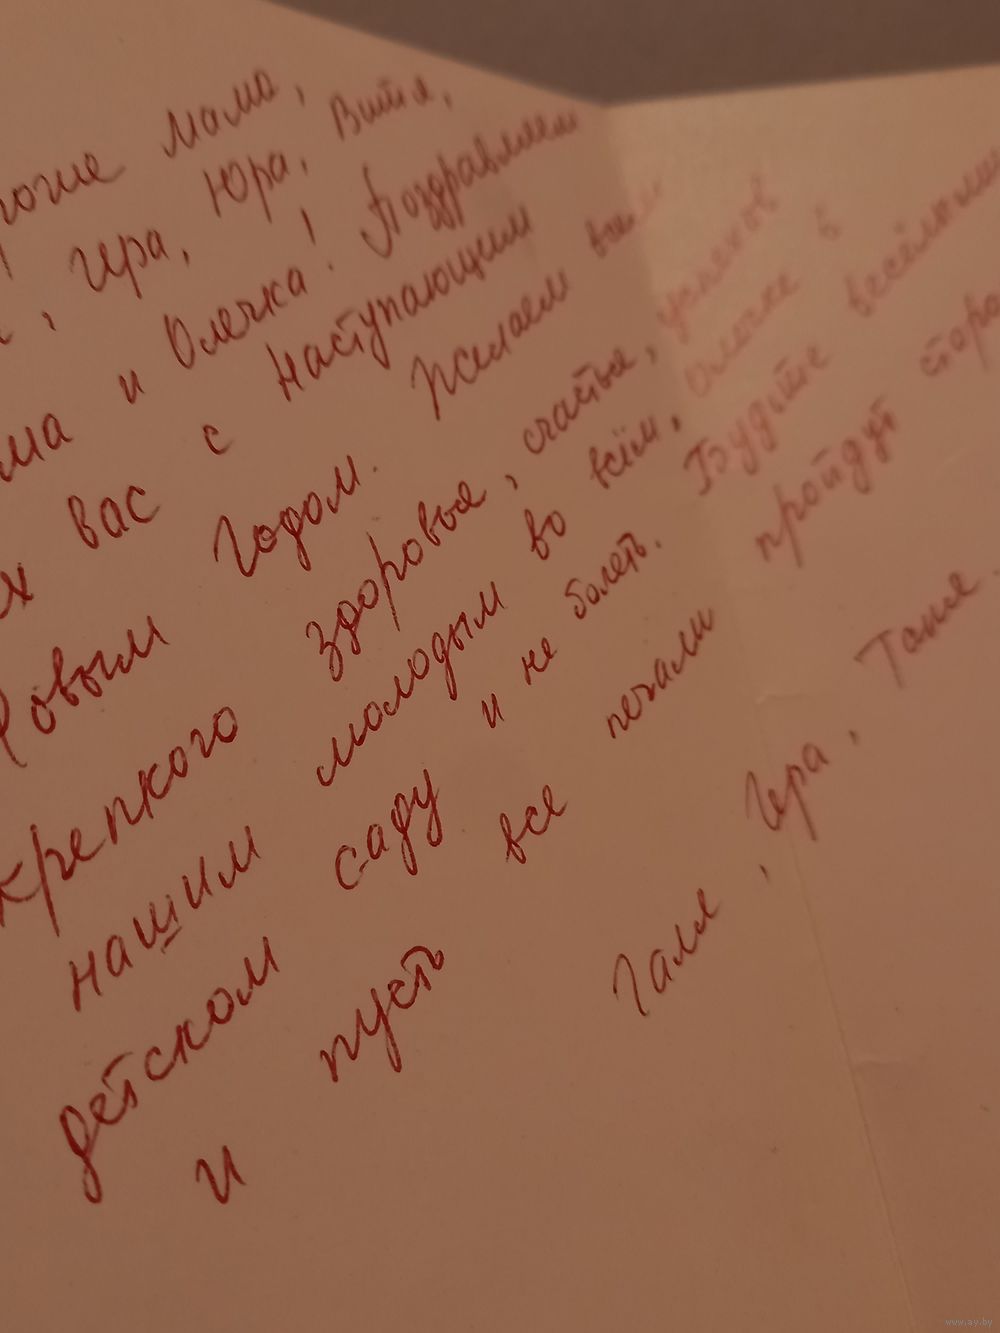 рогие мама,
Ира, Юра, Витя,
ма и Олечка! Поздравляем
х вас с наступающим
Новым Годом. Желаем всем
крепкого здоровья, счастья, успехов
нашим молодым во всём, Олечке в
детском саду и не болеть. Будьте весёлыми
и пусть все печали пройдут стора
Галя, Ира, Таня.
www.ay.by